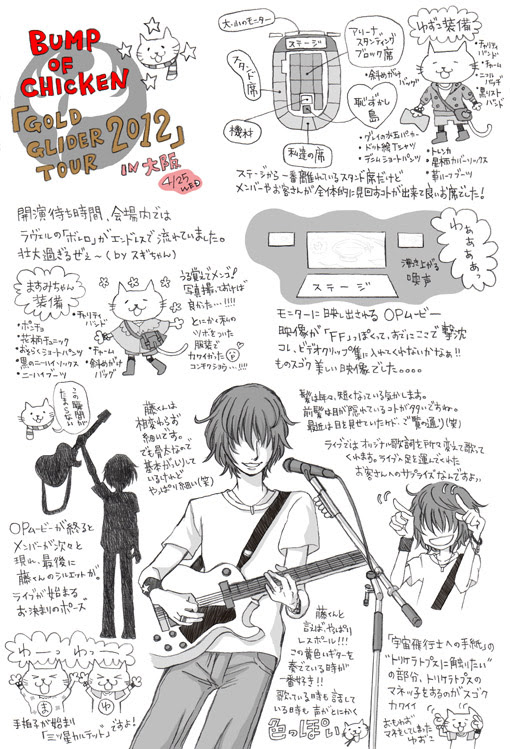 BUMP
OF
CHICKEN
「GOLD
GLIDER 2012」
TOUR
IN 大阪
4/25
WED
大っきいモニター
ステージ
スタンド席
機材
アリーナ
スタンディング
ブロック席
恥ずかし島
私達の席
ゆずこ装備
・チャリティ
バンド
・チャーム
・黒リスト
バンド
・斜めがけ
バッグ
・グレイの水玉パーカー
・ドット腕Tシャツ
・デニムショートパンツ
・トレンカ
・星柄カバーソックス
ステージから一番離れているスタンド席だけど
メンバーやお客さんが全体的に見回すコトが出来て良いお席でした!
開演待ち時間、会場内では
ラヴェルの「ボレロ」がエンドレスで流れていました。
壮大過ぎるぜぇ〜(byスギちゃん)
わぁぁぁぁっ
湧き上がる
歓声
ステージ
モニターに映し出されるOPムービー
映像が「FF」っぽくって、すでにここで撃沈
コレ、ビデオクリップ集に入れてくれないかなぁ!!
ものスゴク美しい映像でした。。。。
ますみちゃん
装備
・チャリティ
バンド
・ポンチョ
・花柄チュニック
・おそらくショートパンツ
・黒のニーハイソックス
・ニーハイブーツ
・チャーム
・斜めがけ
バッグ
うる覚えでメンゴ!
写真撮っておけば
良かった…!!!!
とにかく私の
ツボをついた
服装で
カワイかった
コンチクショウ…!!!!
この瞬間が
たまらんっ
OPムービーが終ると
メンバーが次々と
現れ、最後に
藤くんのシルエットが。
ライヴが始まる
お決まりのポーズ
藤くんは
相変わらず
細いです。
でも骨太なので
基本がっしりして
いるけれど
やっぱり細い(笑)
髪は時々、短くなっている気がします。
前髪は目が隠れているコトが多いですね。
最近は目を見せていたけど、ご覧の通り(笑)
ライブではオリジナル歌詞を所々変えて歌って
くれます。ライブへ足を運んでくれた
お客さんへのサプライズなんですよっ
藤くんと
言えば、やっぱり
レスポール!!!
この黄色いギターを
奏でている時が
一番好き!!
歌っている時も話して
いる時も声がとにかく
色っぽい
「宇宙飛行士への手紙」の
"トリケラトプスに触りたい"
の部分、トリケラトプスの
マネッ子をするのがスゴク
カワイイ
おもわず
マネをしてしまった
ゆずこ
わーっ わっー
ま
ゆ
手拍子が始まり
「三ツ星カルテット」ですよ!